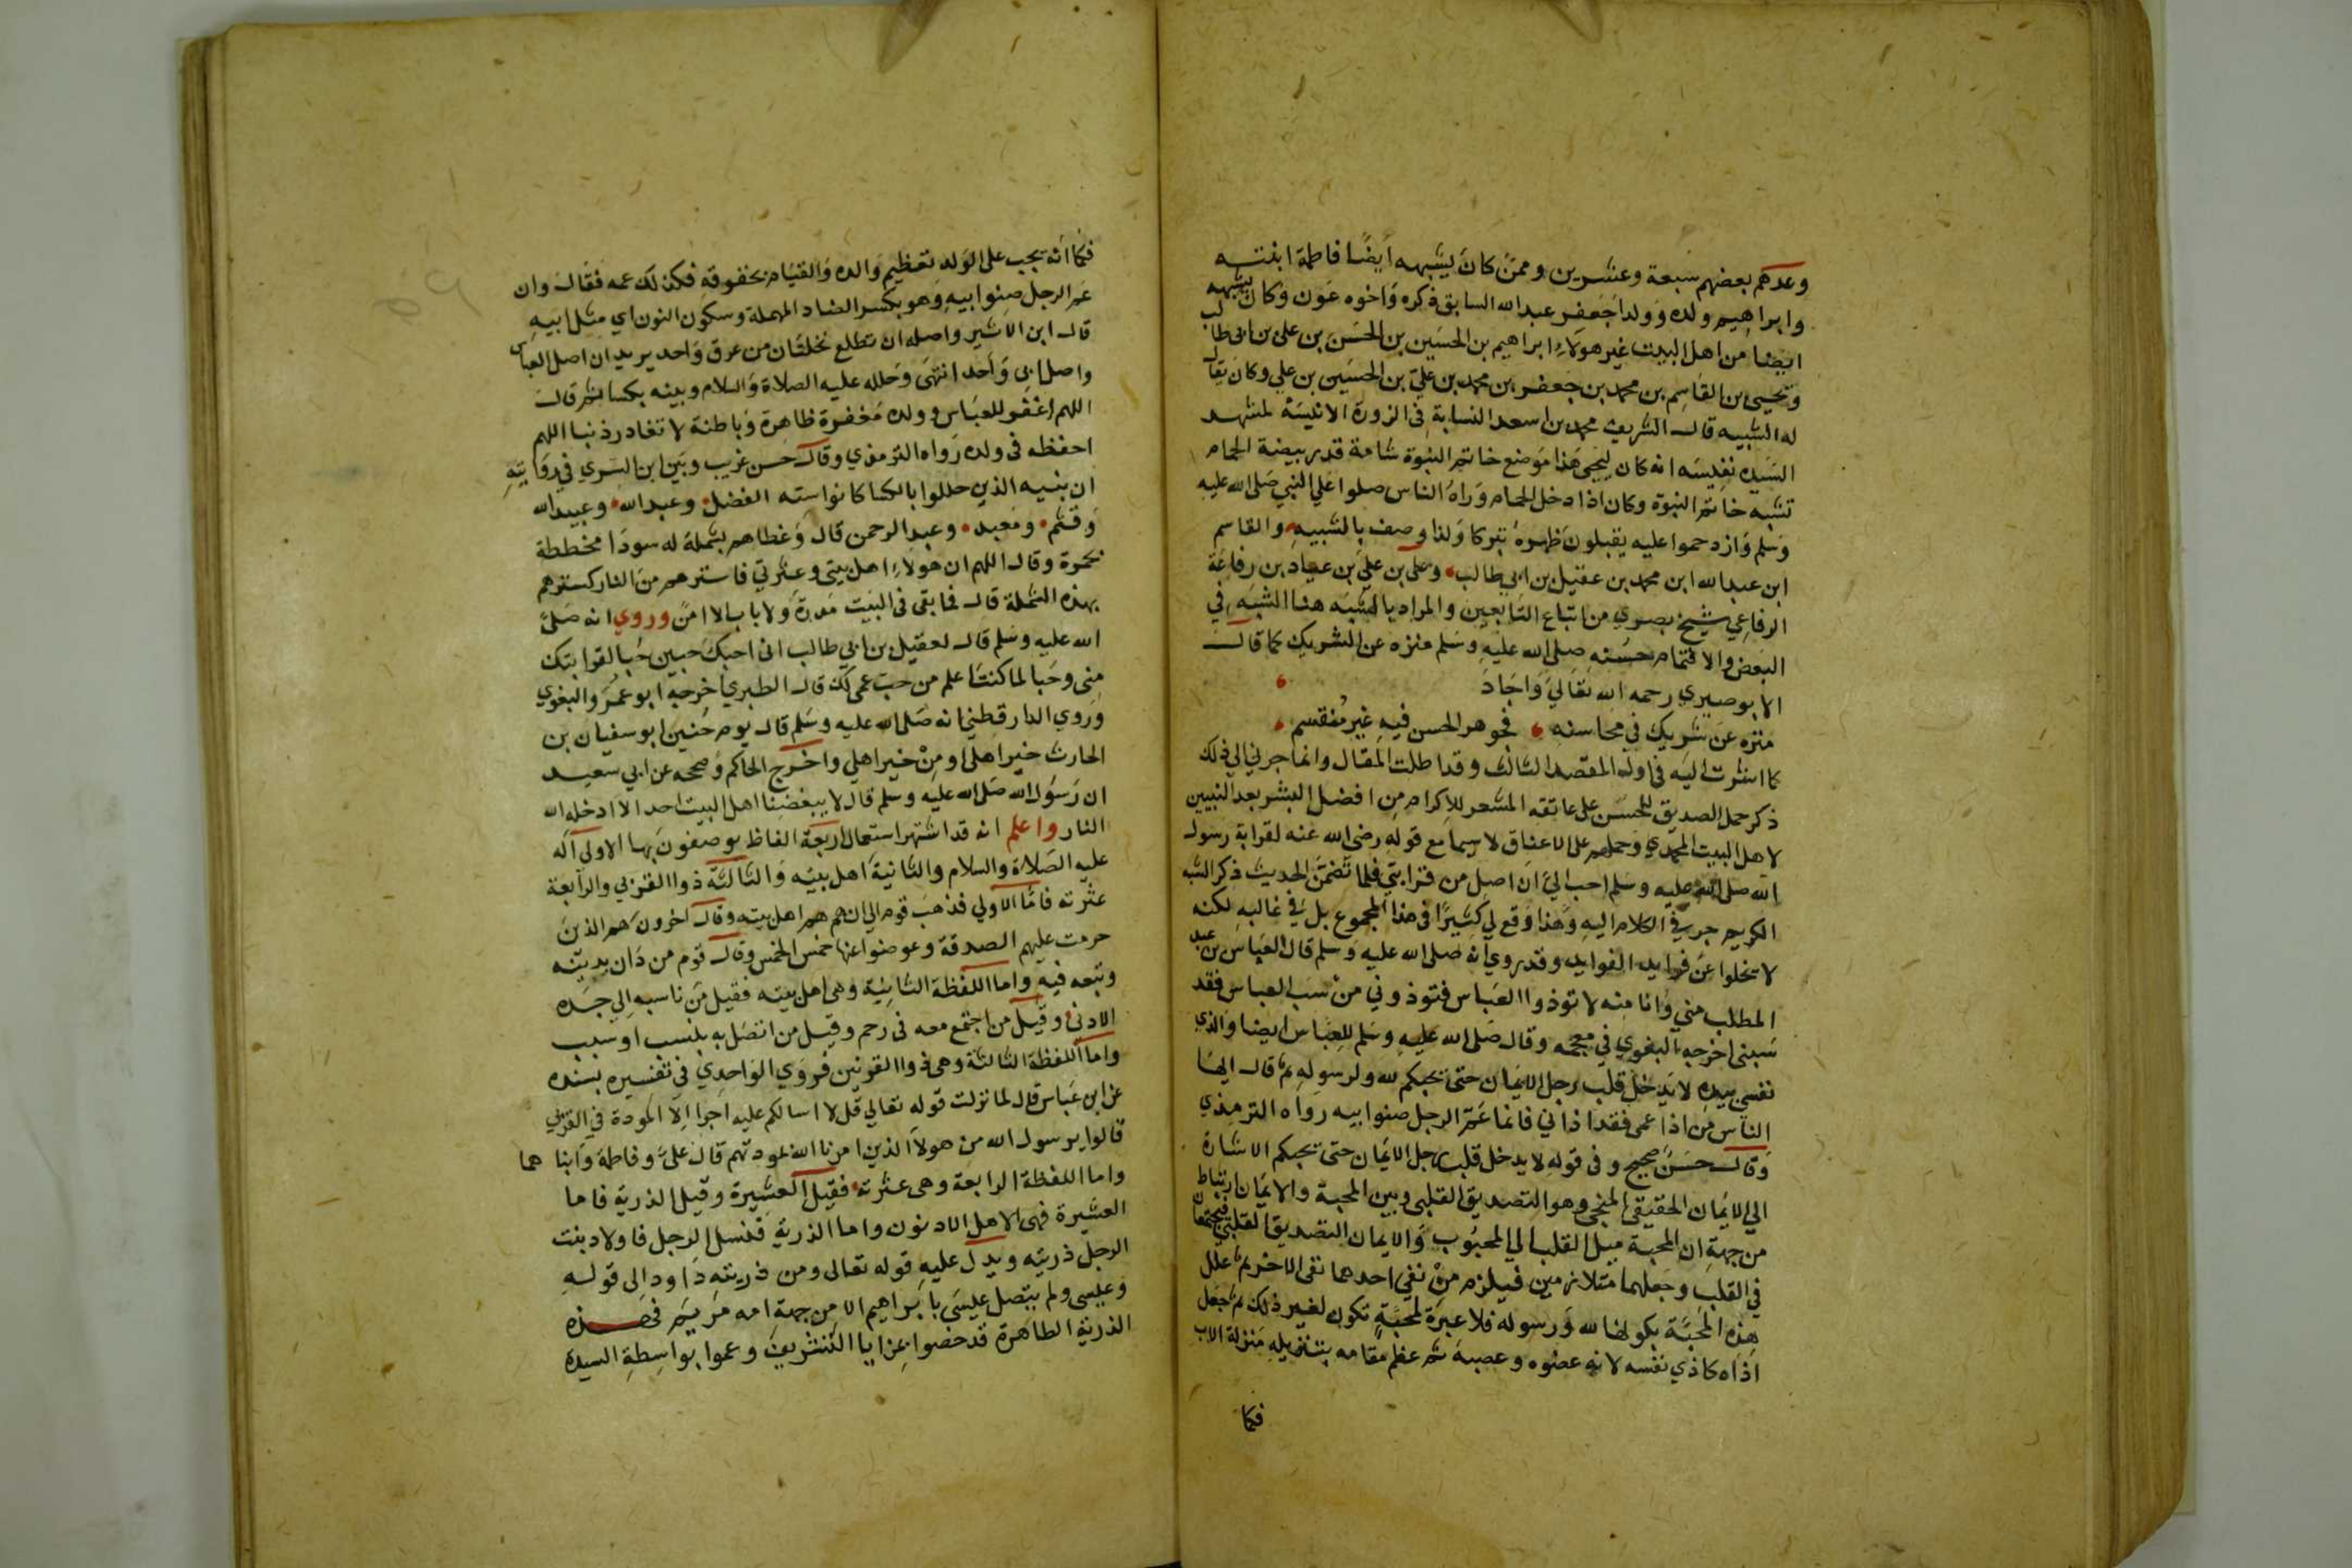 وعدهم بعضهم سبعة وعشرين وممن كان يشبهه أيضا فاطمة ابنته
وابراهيم ولده وولدا جعفر عبدالله السابق ذكره واخوه عون وكان يشبهه
ايضا من اهل البيت غير هولاء ابراهيم بن الحسين بن الحسن بن على بن ابى طالب
ويحيى بن القاسم بن محمد بن جعفر بن محمد بن علي بن الحسين بن علي وكان يقال
له الشبيه قال الشريف محمد بن اسعد النسابة في الزورة الانيسة لمشهد
السيده نفيسه انه كان ليحيى هذا موضع خاتم النبوة شامة قدر بيضة الحمام
تشبه خاتم النبوة وكان اذا دخل الحمام وراه الناس صلوا على النبي صلى الله عليه
وسلم وازدحموا عليه يقبلون ظهره تبركا ولذا وصف بالشبيه والقاسم
ابن عبدالله ابن محمد بن عقيل بن ابي طالب وعلى بن علي بن عباد بن رفاعة
الرفاعي شيخ بصري من اتباع التابعين والمراد بالشبه هنا الشبه في
البعض والا فتمام حسنه صلى الله عليه وسلم منزه عن الشريك كما قال
الابوصيري رحمه الله تعالى واجاد
منزه عن شريك في محاسنه فجوهر الحسن فيه غير منقسم
كما اشرت اليه في اول المقصد الثالث وقد اطلت المقال وانما جرني الي ذلك
ذكر حمل الصديق للحسن على عاتقه المشعر للاكرام من افضل البشر بعد النبيين
لاهل البيت المحمدي وحملهم على الاعناق لا سيما مع قوله رضى الله عنه لقرابة رسول
الله صلى الله عليه وسلم احب الي ان اصل من قرابتي فلما تضمن الحديث ذكر الشبه
الكريم جري الكلام اليه وهذا وقع لي كثيرا في هذا المجموع بل في غالبه لكنه
لا يخلوا عن فرايد الفوايد وقد روي انه صلى الله عليه وسلم قال العباس بن عبد
المطلب مني وانا منه لا توذوا العباس فتوذوني من سب العباس فقد
سبني اخرجه البغوي في معجمه وقال صلى الله عليه وسلم للعباس ايضا والذي
نفسي بيده لا يدخل قلب رجل الايمان حتى يحبكم لله ولرسوله ثم قال ايها
الناس من اذا عمى فقد اذاني فانما عم الرجل صنو ابيه رواه الترمذي
وقال حسن صحيح وفي قوله لا يدخل قلب رجل الايمان حتى يحبكم الاشارة
الي الايمان الحقيقي المنجي وهو التصديق القلبي وبين المحبة والايمان ارتباط
من جهة ان المحبة ميل القلب الي المحبوب والايمان التصديق القلبي فيجتمعان
في القلب وجعلهما متلازمين فيلزم من نفي احدهما نفي الاخر ثم علل
هذه المحبة بكونها لله ورسوله فلا عبرة لمحبة تكون لغير ذلك ثم جعل
اذاه كاذي نفسه لانه عضوه وعصبه ثم عظم مقامه بتنزيله منزلة الاب
فكما
فكما أنه يجب على الولد تعظيم والده والقيام بحقوقه فكذلك عمه فقال وان
عم الرجل صنو ابيه وهو بكسر الصاد المهملة وسكون النون اي مثل ابيه
قال ابن الاثير واصله ان تطلع نخلتان من عرق واحد يريد ان اصل العباس
واصل ابي واحد انتهى وجلله عليه الصلاة والسلام وبنيه بكسا ثم قال
اللهم اغفر للعباس وولده مغفرة ظاهرة وباطنة لا تغادر ذنبا اللهم
احفظه في ولده رواه الترمذي وقال حسن غريب وبين ابن السري في روايته
ان بنيه الذين جللوا بالكسا كانوا سته الفضل وعبدالله وعبيدالله
وقثم ومعبد وعبد الرحمن قال وغطاهم بشملة له سودا مخططة
بحمرة وقال اللهم ان هولاء اهل بيتي وعترتي فاسترهم من النار كسترهم
بهذه الشملة قال فما بقي في البيت مدرة ولا باب الا امن وروي انه صلى
الله عليه وسلم قال لعقيل بن ابي طالب اني احبك حبين حبا لقرابتك
مني وحبا لما كنت اعلم من حب عمى لك قال الطبري اخرجه ابو عمر والبغوي
وروي الدارقطني انه صلى الله عليه وسلم قال يوم حنين ابو سفيان بن
الحارث خير اهلى او من خير اهلي واخرج الحاكم وصححه عن ابي سعيد
ان رسول الله صلى الله عليه وسلم قال لا يبغضنا اهل البيت احد الا ادخله الله
النار واعلم انه قد اشتهر استعمال اربعة الفاظ يوصفون بها الاولى آله
عليه الصلاة والسلام والثانية اهل بيته والثالثة ذوا القربي والرابعة
عترته فاما الاولي فذهب قوم الي انهم هم اهل بيته وقال اخرون هم الذين
حرمت عليهم الصدقة وعوضوا عنها خمس الخمس وقال قوم من دان بدينه
وتبعه فيه واما اللفظة الثانية وهي اهل بيته فقيل من ناسبه الي جده
الادنى وقيل من اجتمع معه في رحم وقيل من اتصل به بنسب او سبب
واما اللفظة الثالثة وهى ذوا القربي فروي الواحدي في تفسيره بسنده
عن ابن عباس قال لما نزلت قوله تعالي قل لا اسالكم عليه اجرا الا المودة في القربي
قالوا يرسول الله من هولا الذين امرنا الله بمودتهم قال على وفاطمة وابناهما
واما اللفظة الرابعة وهى عترته فقيل العشيرة وقيل الذرية فاما
العشيرة فهى الاهل الادنون واما الذرية فنسل الرجل فاولاد بنت
الرجل ذريته ويدل عليه قوله تعالى ومن ذريته داود الى قوله
وعيسى ولم يتصل عيسى بابراهيم الا من جهة امه مريم فهذه
الذرية الطاهرة قد خصوا بمزايا التشريف وعموا بواسطة السيدة